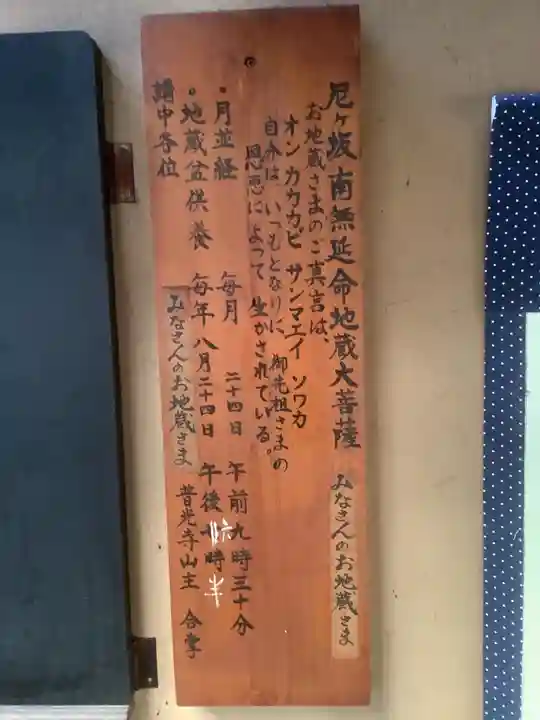 尼ヶ坂南無延命地蔵大菩薩 みなさんのお地蔵さま
お地蔵さまのご真言は、
オン カカカビ サンマエイ ソワカ
自分は、いつもとなりに、御先祖さまの
恩恵によって 生かされている。
・月並経 毎月 二十四日 午前九時三十分
・地蔵盆供養 毎年八月二十四日 午後六時半
講中各位 みなさんのお地蔵さま 普光寺山主 合掌